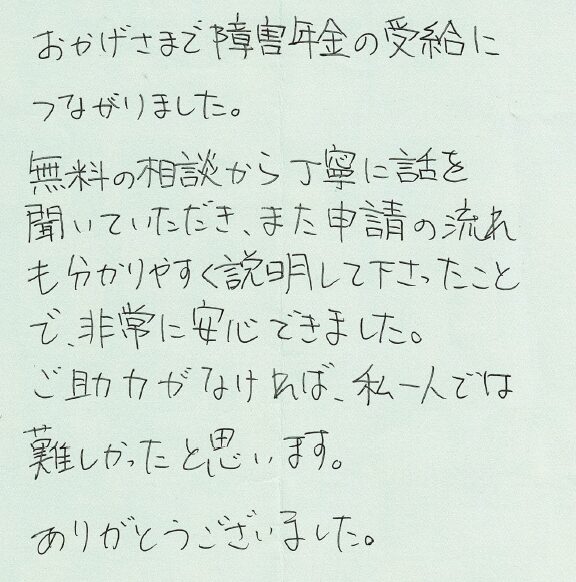 おかげさまで障害年金の受給に
つながりました。
無料の相談から丁寧に話を
聞いていただき、また申請の流れ
も分かりやすく説明して下さったこと
で、非常に安心できました。
ご助力がなければ、私一人では
難しかったと思います。
ありがとうございました。